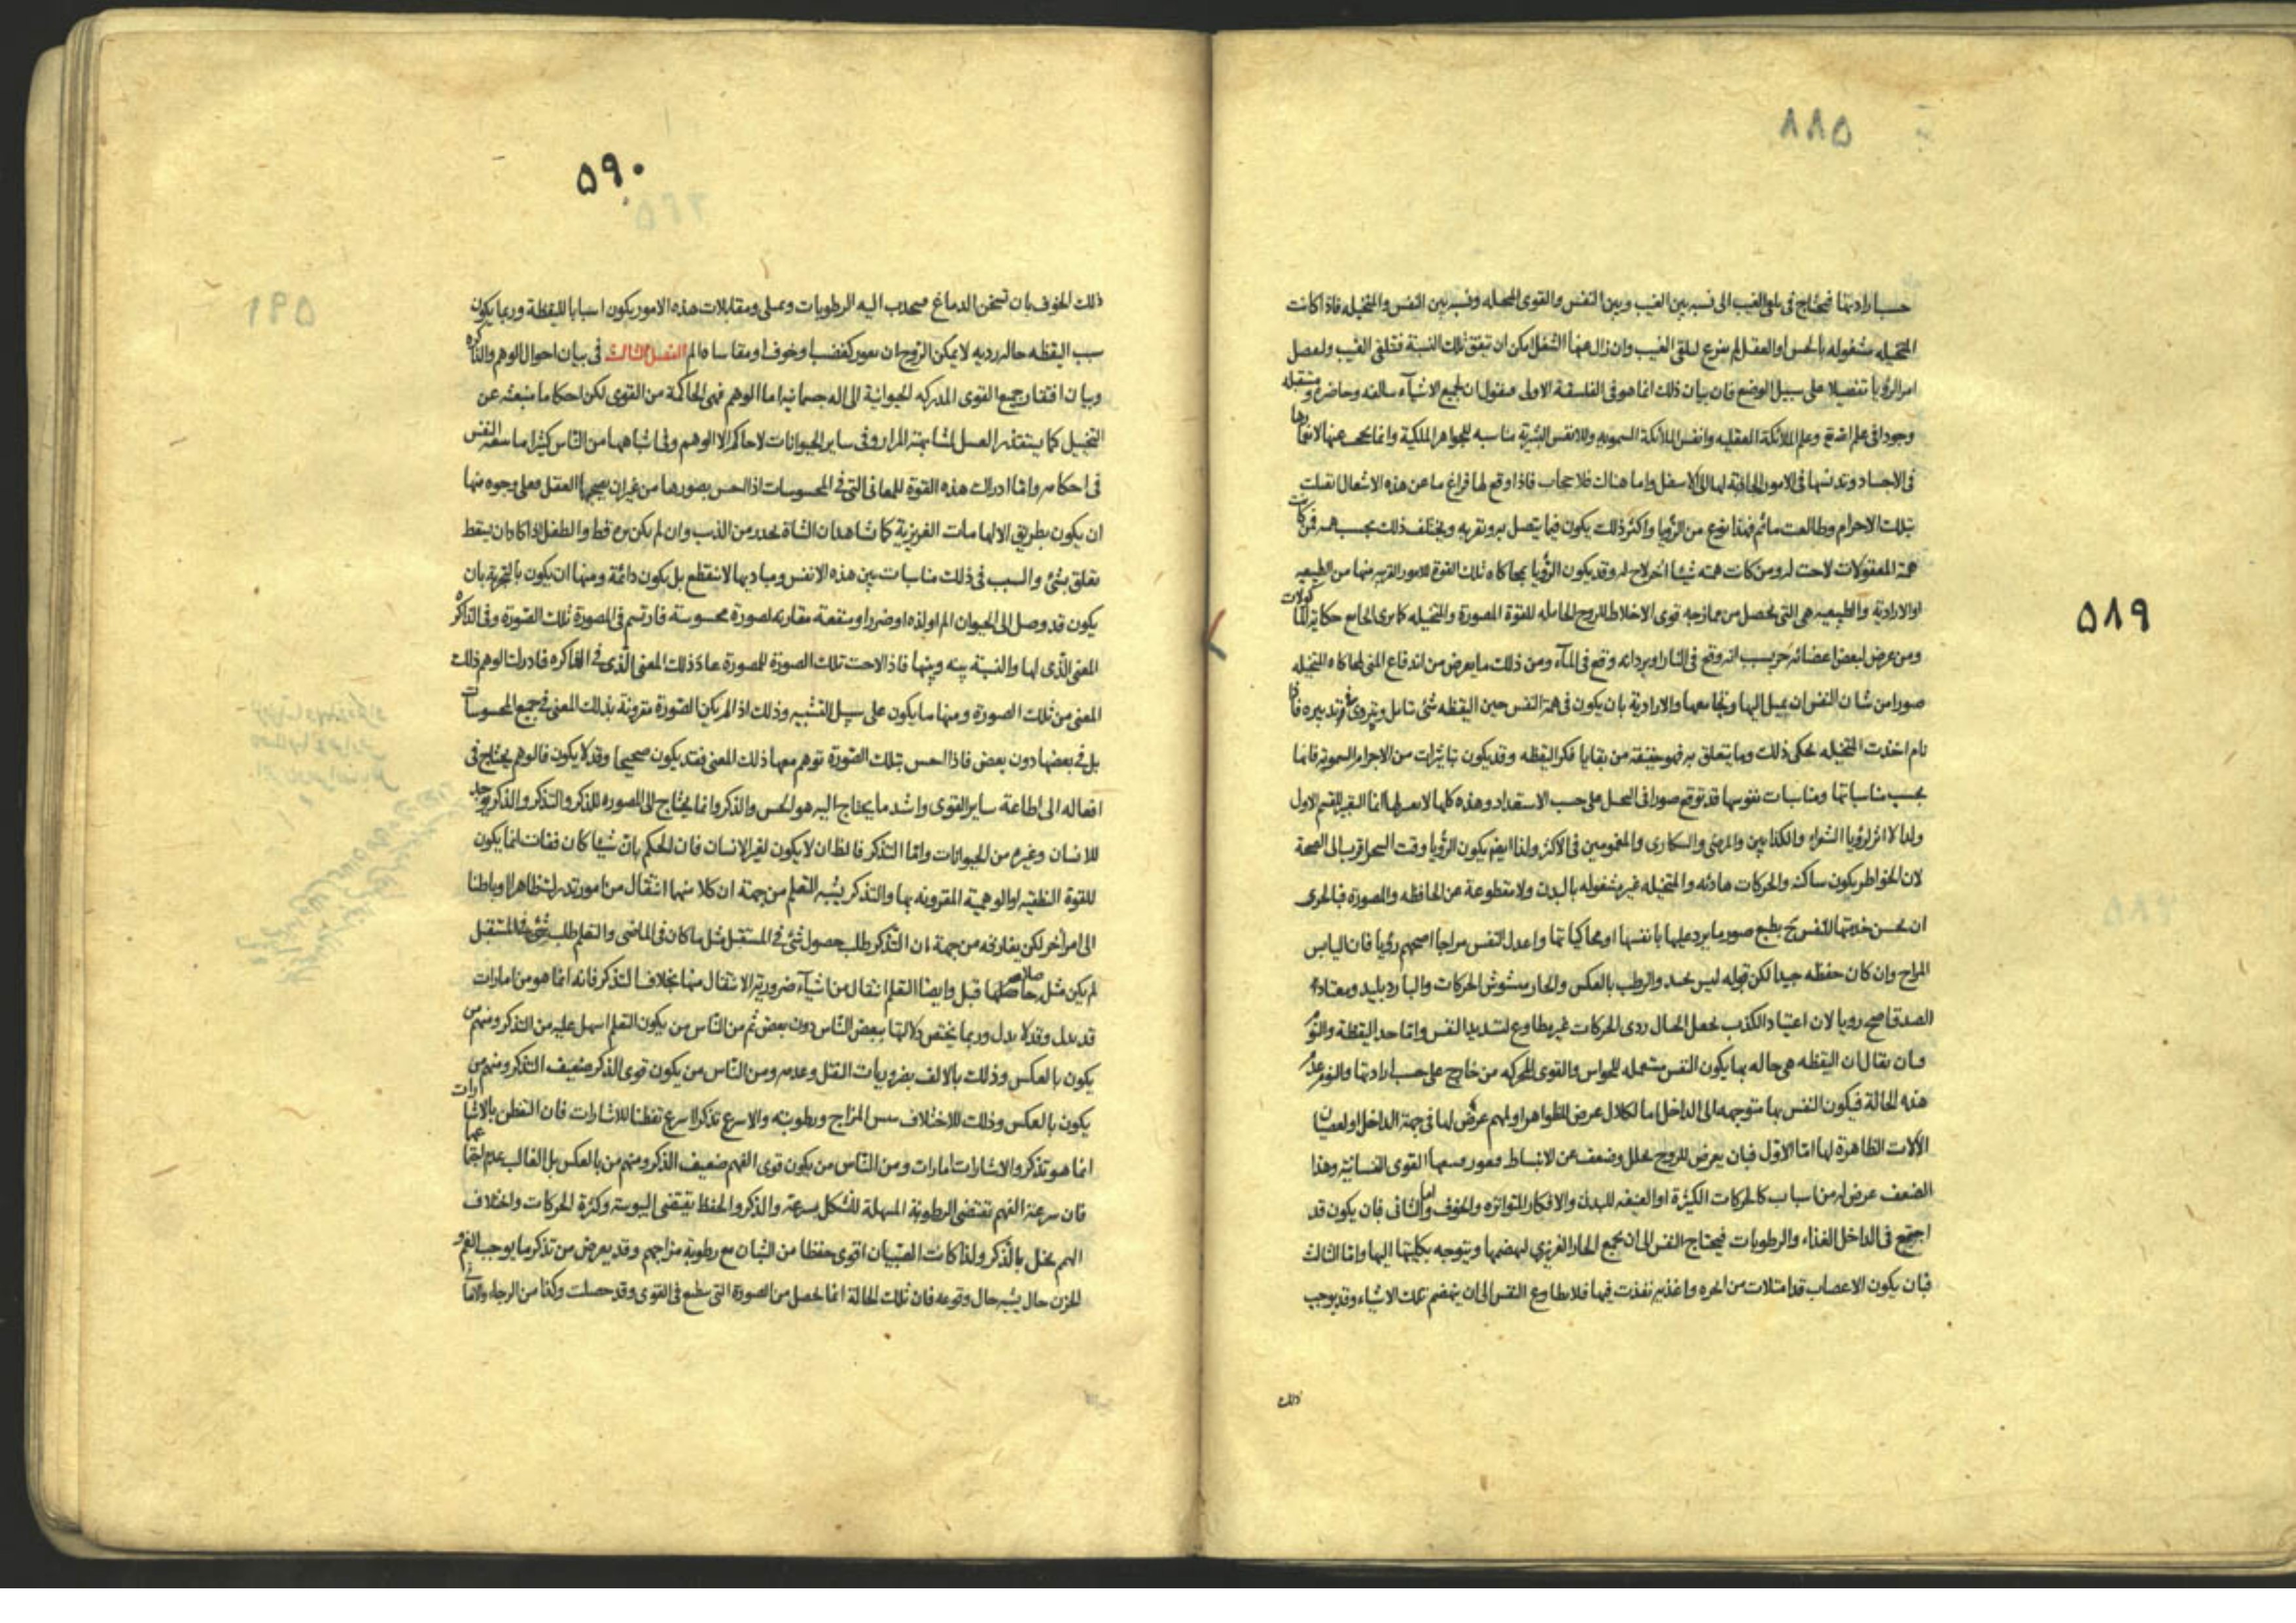 ٥٨٩
حسب ارادتها فيحتاج فى تلقى الغيب الى نسبة بين الغيب وبين النفس والقوى المتخيله ونسبة بين النفس والمتخيله فاذا كانت
المتخيله مشغوله بالحس او العقل لم تفرغ لتلقى الغيب وان زال عنها الشغل امكن ان تتفق تلك النسبة فتتلقى الغيب
امر الرؤيا تفصيلا على سبيل الوضع فان بيان ذلك انما هو فى الفلسفة الاولى فنقول ان لجميع الاشيآء سالفه وحاضره ومستقبله
وجودا فى علم الله تع وعلم الملائكة العقليه وانفس الملائكة السمويه وللانفس البشرية مناسبه للجواهر الملكية وانما تحتجب عنها لانغمارها
فى الاجساد وتدنسها فى الامور الجاذبة لها الى الاسفل واما هناك فلا حجاب فاذا وقع لها فراغ ما عن هذه الاشغال اتصلت
بتلك الاجرام وطالعت ما ثم فهذا نوع من الرؤيا واكثر ذلك يكون فيما يتصل به ويقربه ويختلف ذلك بحسب همته فمن كانت
همته المعقولات لاحت له ومن كانت همته شيئا اخر لاح له وقد يكون الرؤيا بمحاكاه تلك القوة للامور القريبه منها من الطبيعيه
او الارادية والطبيعيه هى التى تحصل من ممازجه قوى الاخلاط للروح الحامله للقوة المصورة والمتخيله كما يرى الجايع حكاية للمأكولات
ومن عرض لبعض اعضائه حر يسبب انه وقع فى النار او برد انه وقع فى المآء ومن ذلك ما يعرض من اندفاع المنى لمحاكاه المتخيله
صورا من شان النفس ان يميل اليها وتجامعها والارادية بان يكون فى همة النفس حين اليقظه شئ تتامل وتتروى فى تدبيره فاذا
نام اخذت المتخيله تحكى ذلك وما يتعلق به فهو حقيقته من بقايا فكر اليقظه وقد يكون تاثيرات من الاجرام السموية فانها
بحسب مناسباتها ومناسبات نفوسها قد توقع صورا فى التخيل على حسب الاستعداد وهذه كلها لا تعبر لها انما التعبير للقسم الاول
ولذا لا اثر لرؤيا الشعراء والكذابين والمرضى والسكارى والمغمومين فى الاكثر ولذا ايضم يكون الرؤيا وقت السحر اقرب الى الصحة
لان الخواطر يكون ساكنه والحركات هادئه والمتخيله غير مشغوله بالبدن ولا مقطوعة عن الحافظه والمصورة فبالحرى
ان يحسن خدمتها للنفس بطبع صور ما يرد عليها بانفسها او محاكياتها واعدل النفس مزاجا اصحهم رؤيا فان اليابس
المزاج وان كان حفظه جيدا لكن قبوله ليس بجيد والرطب بالعكس والحار مشوش الحركات والبارد بليد ومعتاد
الصدق اصح رويا لان اعتياد الكذب يجعل الخيال ردى الحركات غير مطاوع لتسديد النفس واما حد اليقظة والنوم
فبان يقال ان اليقظه هى حاله بها يكون النفس مستعمله للحواس والقوى المحركه من خارج على حسب ارادتها والنوم عدم
هذه الحالة فيكون النفس بها متوجهه الى الداخل اما لكلال عرض للظواهر او لمهم عرض لها فى جهة الداخل او لعصيان
الآلات الظاهرة لها اما الاول فبان يعرض للروح تحلل وضعف عن الانبساط فيغور القوى النفسانية وهذا
الضعف عرض له من اسباب كالحركات الكثيرة او العنيفه للبدن والافكار المتواتره والخوف واما الثانى فبان يكون قد
اجتمع فى الداخل الغذاء والرطوبات فيحتاج النفس الى ان يجمع الحار الغريزى لهضمها ويتوجه بكليتها اليها واما الثالث
فبان يكون الاعصاب قد امتلات من ابخره واغذيه نفذت فيها فلا يطاوع النفس الى ان ينهضم تلك الاشياء وقد يوجب
ذلك
٥٩٠
ذلك الخوف بان تسخن الدماغ فينجذب اليه الرطوبات وتمتلى ومقابلات هذه الامور يكون اسبابا لليقظة وربما يكون
سبب اليقظه حاله رديه لا يمكن الروح ان تغور كغضب او خوف او مقاساه الم الفصل الثالث فى بيان احوال الوهم والذاكره
وبيان افتقار جميع القوى المدركه الحيوانية الى اله جسمانيه اما الوهم فهى الحاكمة من القوى لكن احكاما منبعثه عن
التخيل كما يستقذر العسل لمشابهته المرار وفى ساير الحيوانات لا حاكم الا الوهم وفى اشباهها من الناس كثيرا ما يتبعه النفس
فى احكامه واما ادراك هذه القوة للمعانى التى فى المحسوسات اذا الحس بصورها من غير ان يصحبها العقل فعلى وجوه منها
ان يكون بطريق الالهامات الغريزية كما شاهد ان الشاة تحذر من الذئب وان لم يكن تره قط والطفل اذا كاد ان يسقط
تعلق بشئ والسبب فى ذلك مناسبات بين هذه الانفس ومباديها لا تنقطع بل يكون دائمة ومنها ان يكون بالتجربة بان
يكون قد وصل الى الحيوان الم او لذه او ضرر او منفعة مقارنه لصورة محسوسة فارتسم فى المصورة تلك الصورة وفى الذاكره
المعنى الذى لها والنسبة بينه وبينها فاذا لاحت تلك الصورة للمصورة عاد ذلك المعنى الذى فى الذاكره فادرك الوهم ذلك
المعنى من تلك الصورة ومنها ما يكون على سبيل التشبيه وذلك اذا لم يكن الصورة مقرونة بذلك المعنى فى جميع المحسوسات
بل فى بعضها دون بعض فاذا الحس بتلك الصورة توهم معها ذلك المعنى فقد يكون صحيحا وقد لا يكون فالوهم يحتاج فى
افعاله الى اطاعة ساير القوى واشد ما يحتاج اليه هو الحس والذكر وانما يحتاج الى المصوره للذكر والتذكر والذكر يوجد
للانسان وغيره من الحيوانات واما التذكر فالظ ان لا يكون لغير الانسان فان الحكم بان شيئا كان ففات انما يكون
للقوة النطقيه او الوهمية المقرونه بها والتذكر يشبه التعلم من جهة ان كلا منهما انتقال من امور تدرك ظاهرا وباطنا
الى امر آخر لكن يفارقه من جهة ان التذكر طلب حصول شئ فى المستقبل مثل ما كان فى الماضى والتعلم طلب شئ فى المستقبل
لم يكن مثل حاصلها قبل وايضا التعلم انتقال من اشيآء ضرورية الانتقال منها بخلاف التذكر فانه انما هو من امارات
قد يدل وقد لا يدل وربما يختص دلالتها ببعض الناس دون بعض ثم من الناس من يكون التعلم اسهل عليه من التذكر ومنهم من
يكون بالعكس وذلك بالالف بضروريات النقل وعدمه ومن الناس من يكون قوى الذكر ضعيف التذكر ومنهم من
يكون بالعكس وذلك للاختلاف يبس المزاج ورطوبته والاسرع تذكرا اسرع تفطنا للاشارات فان التفطن بالاشارات
انما هو تذكر والاشارات امارات ومن الناس من يكون قوى الفهم ضعيف الذكر ومنهم من بالعكس بل الغالب عدم اجتماعهما
فان سرعة الفهم تقتضى الرطوبة المسهلة للتشكل بسرعة والذكر والحفظ يقتضى اليبوسة وكثرة الحركات واختلاف
الهم يخل بالذكر ولذا كانت الصبيان اقوى حفظا من الشبان مع رطوبة مزاجهم وقد يعرض من تذكر ما يوجب الغم و
الحزن حال يشبه حال وقوعه فان تلك الحالة انما يحصل من الصورة التى تنطبع فى القوى وقد حصلت وكذا من الرجاء والامانى